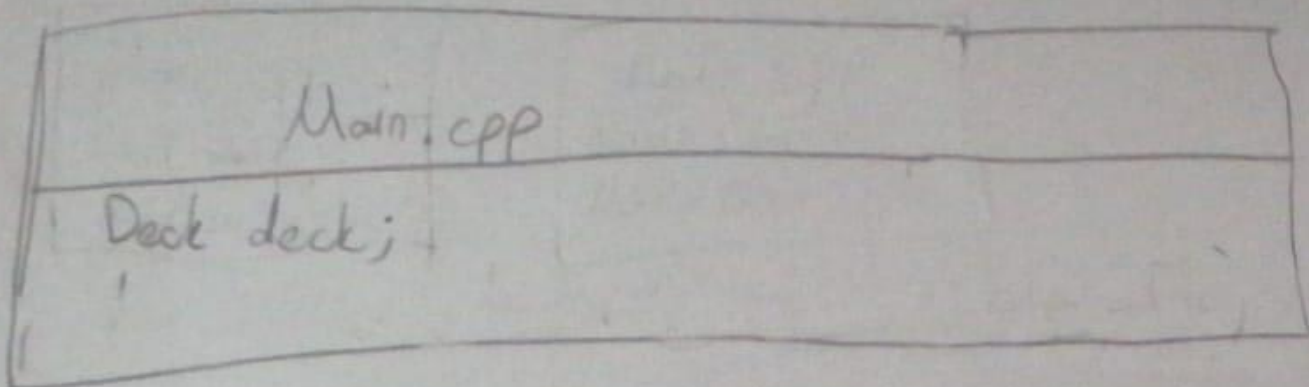 Main.cpp
Deck deck;